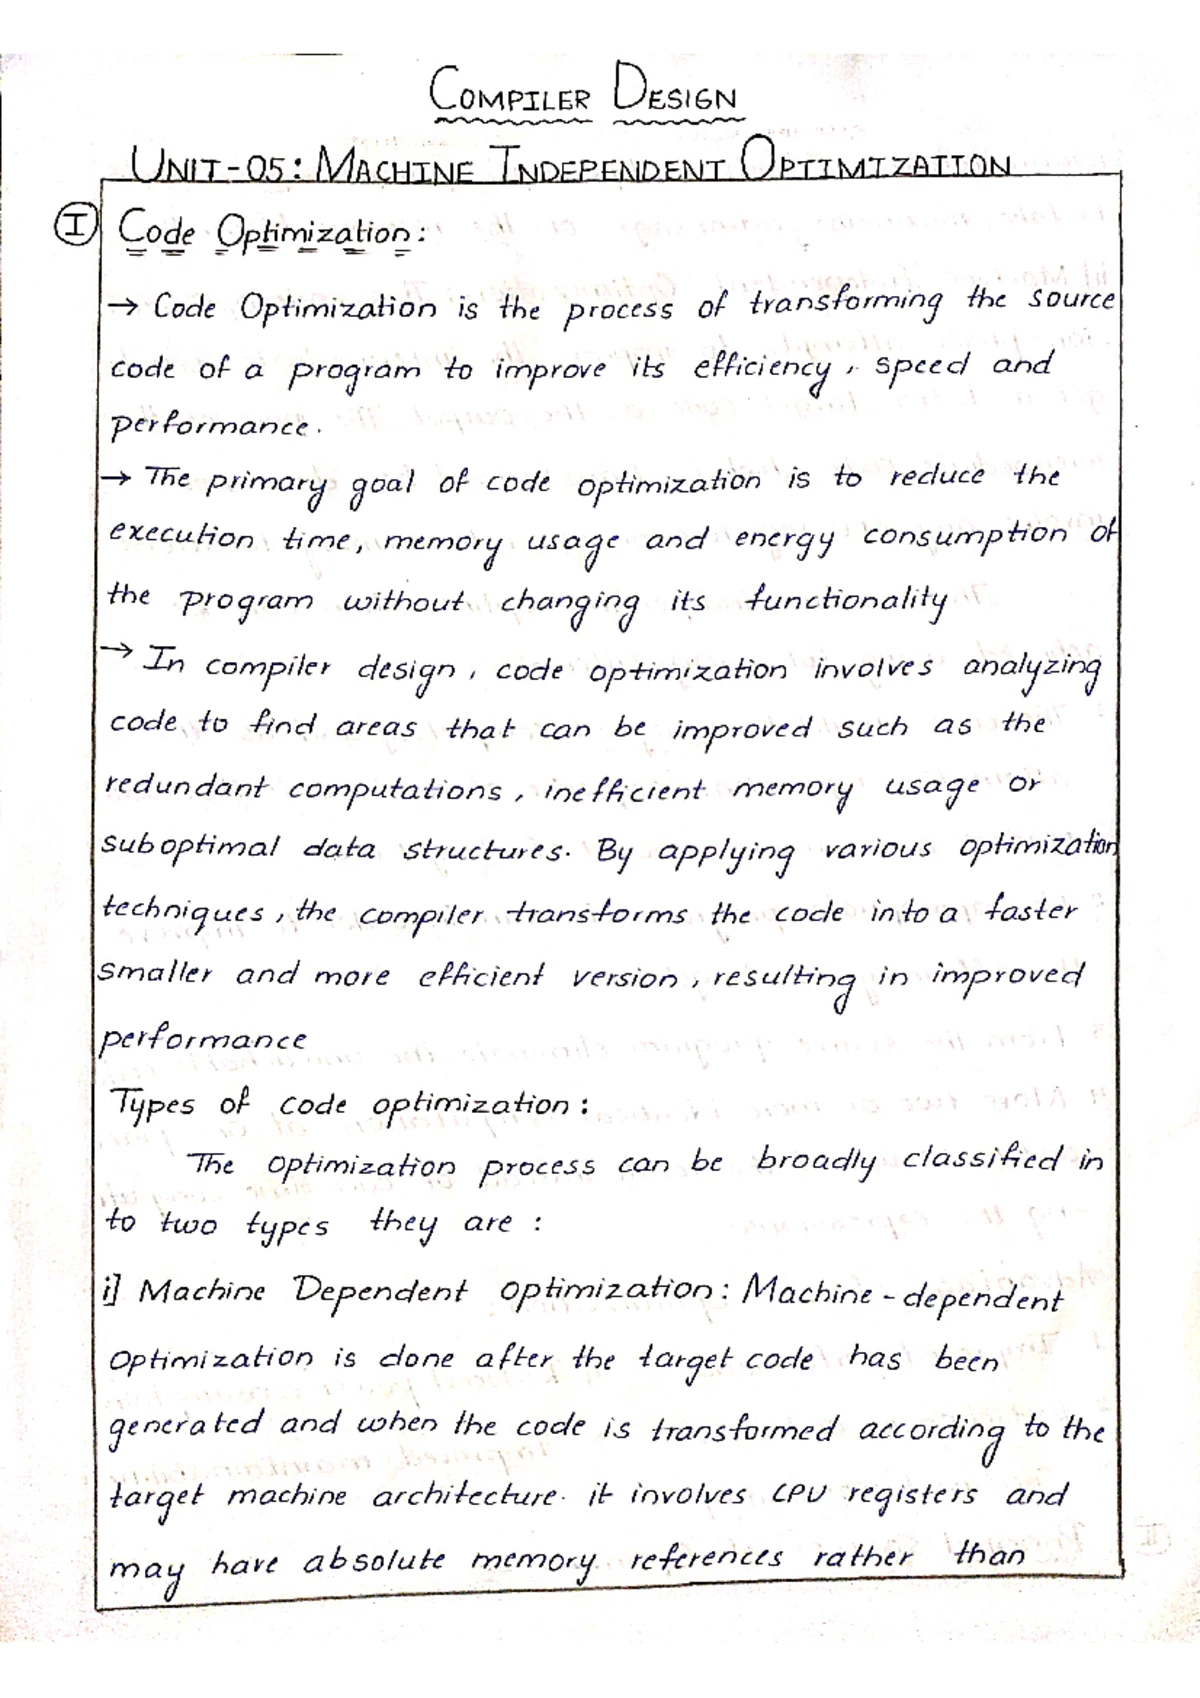 COMPILER DESIGN
UNIT-05: MACHINE INDEPENDENT OPTIMIZATION
I Code Optimization:
→ Code Optimization is the process of transforming the source
code of a program to improve its efficiency, speed and
performance.
→ The primary goal of code optimization is to reduce the
execution time, memory usage and energy consumption of
the program without changing its functionality
→ In compiler design, code optimization involves analyzing
code to find areas that can be improved such as the
redundant computations, inefficient memory usage or
suboptimal data structures. By applying various optimization
techniques, the compiler transforms the code into a faster
smaller and more efficient version, resulting in improved
performance
Types of code optimization:
The optimization process can be broadly classified in
to two types they are :
i] Machine Dependent optimization: Machine-dependent
Optimization is done after the target code has been
generated and when the code is transformed according to the
target machine architecture. it involves CPU registers and
may have absolute memory references rather than